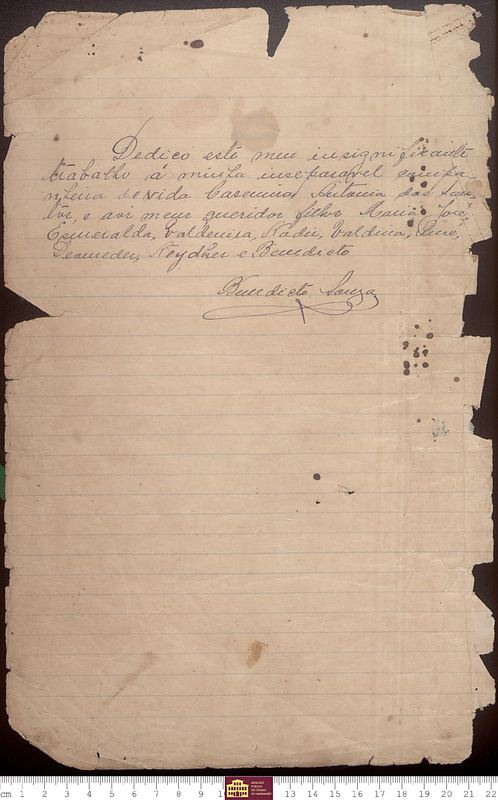 Dedico este meu insignificante
trabalho á minha inseparavel compa-
nheira de vida Casemira Antonia dos San-
tos, e aos meus queridos filhos Maria José,
Esmeralda, Valdenisa, Nadir, Valdina,
Neydher e Benedicto
Benedicto Souza
cm 1 2 3 4 5 6 7 8 9 13 14 15 16 17 18 19 20 21 22
ARQUIVO
PÚBLICO
DO ESTADO
DO MARANHÃO